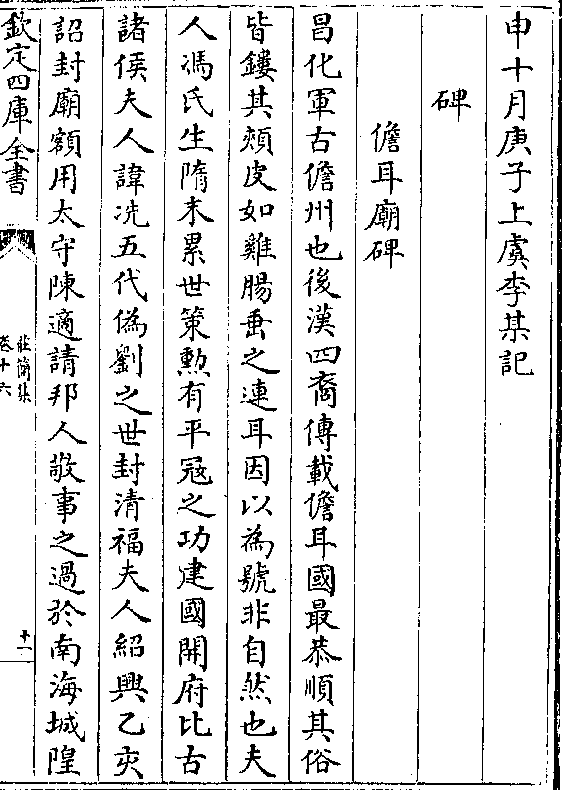 申十月庚子上虞李某記
碑
儋耳廟碑
昌化軍古儋州也後漢四裔傳載儋耳國最恭順其俗
皆鏤其頰皮如雞腸垂之連耳因以為號非自然也夫
人馮氏生隋末累世策勲有平冦之功建國開府比古
諸侯夫人諱冼五代偽劉之世封清福夫人紹興乙亥
詔封廟額用太守陳適請邦人敬事之過於南海城隍
欽定四庫全書
莊簡集
卷十六
十一